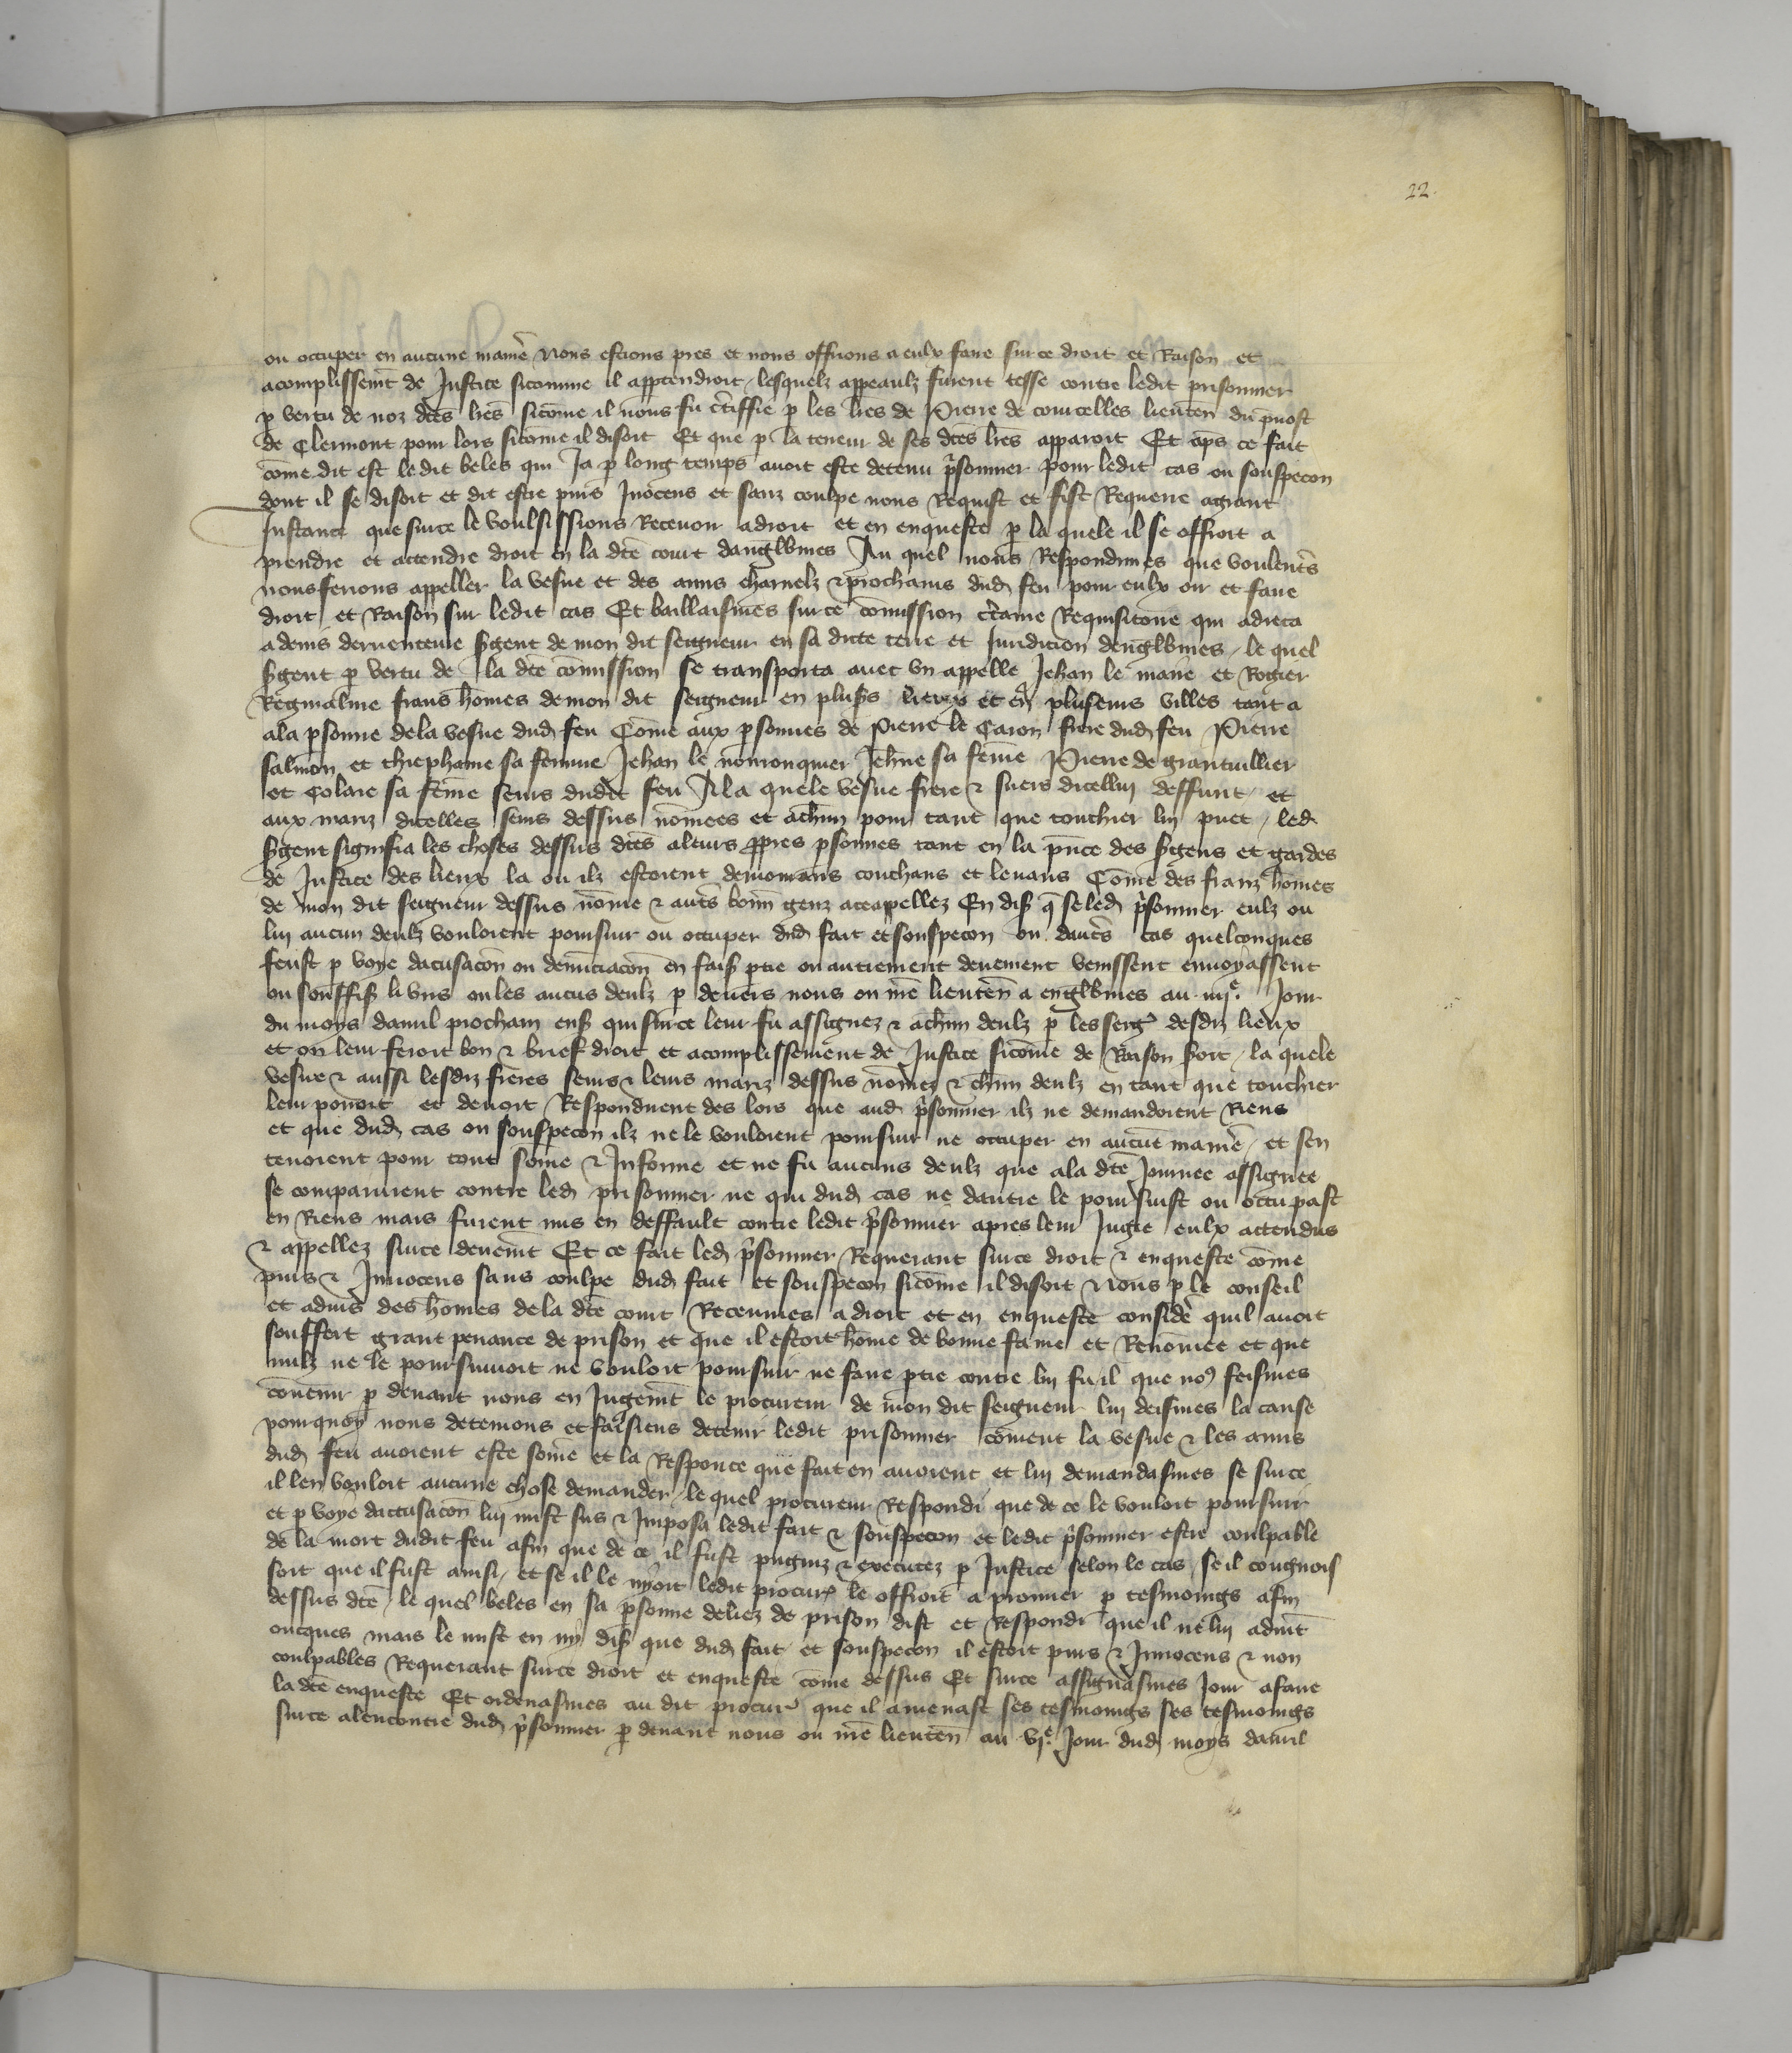 22.
ou occuper en aucune maniẽ Nous estions pres et nous offrions a eulx faire sur ce droit et Raison et
acomplissemt̃ de Justice sicomme il apptendroit / lesquelz appeaulx furent fesse contre ledit prisonnier
p vertu de noz dc̃es lrẽs sicõme il nous fu c̃tiffie p les lrẽs de Pierre de courcelles lieuten̄ du p̃uost
de Clermont pour lors sicõme il disoit Et que p la teneur de ses dc̃es lrẽs apparoit Et ap̃s ce fait
cõme dit est ledit beles qui Ja p long temps auoit este detenu p̃sonnier pour ledit cas ou souspecon
dont il se disoit et dit estre purs Inocens et sanz coulpe nous Requist et fist Requerre agrant
Instance que sur ce le voulsissions Receuoir adroit et en enqueste p la quele il se offroit a
prendre et attendre droit en la dc̃e court dangl'vmes Au quel nous Respondimes que voulent̃s
nous ferions appeller la vesue et des amis charnelz & prochains dud feu pour eulx oir et faire
droit et Raison sur ledit cas Et baillasmes sur ce cõmission c̃taine Requisitoire qui adreca
a denis sergent de mon dit seigneur en sa dicte terre et Juridicion dengl'vmes / le quel
sgent p vertu de la dc̃e cõmission se transporta auec vn appelle Jehan le maire et Rogier
frans hõmes de mon dit seigneur en plus̃s lieux et en pluseurs villes tant a
ala psonne dela vesue dud feu Cõme aux psonnes de Pierre le Caron frere dud feu Pierre
salmon et thiephaine sa femme Jehan le Jeh̃ne sa fem̃e Pierre de grantuillier
et Colaie sa fem̃e seurs dudit feu A la quele vesue frere & suers dicellui deffunt / et
aux mariz dicelles seurs dessus nõmees et ach̃un pour tant que touchier lui puet / led
sgent signifia les choses dessus dc̃es aleurs ppres psonnes tant en la p̃nce des sgens et gardes
de Justice des lieux la ou ilz estoient demorans couchans et leuans Cõme des franz hõmes
de mon dit seigneur dessus nõme & aut̃s bonñ genz ace appellez En dis̃ q̃ se led p̃sonnier eulz ou
lui aucun deulz vouloient poursuir ou occuper dud fait et souspecon ou daut̃s cas quelconques
feust p voye dacusacõn ou denũciacõn en fais̃ ptie ou autrement deuement venissent enuoyassent
ou souffis̃ li vns ou les aucũs deulz p deuers nous ou nr̃e lieuten̄ a engl'vmes au iiij.e Jour
du moys dauril prochain ens̃ qui sur ce leur fu assignez & ach̃un deulz p les serg̃ desdiz lieux
et on leur feroit bon & brief droit et acomplissement de Justice sicõme de Raison s̃oit / la quele
vesue & aussi lesdiz freres seurs & leurs mariz dessus nõmez & ch̃un deulz en tant que touchier
leur pouoit et deuoit Respondirent des lors que aud p̃sonnier ilz ne demandoient Riens
et que dud cas ou souspecon ilz ne le vouloient poursuir ne occuper en aucũe maniẽ / et sen
tenoient pour tout sõme & Informe et ne fu aucuns deulz que ala dc̃e Journee assignee
se comparurent contre led prisonnier ne qui dud cas ne dautre le poursuist ou occupast
en Riens mais furent mis en deffault contre ledit p̃sonnier apres leur Jugie eulx attendus
& appellez sur ce deuemt̃ Et ce fait led p̃sonnier Requerant sur ce droit & enqueste cõme
purs & Innocens sans coulpe dud fait et souspecon sicõme il disoit Nous p le conseil
et aduis des hõmes dela dc̃e court Receumes adroit et en enqueste considẽ quil auoit
souffert grant penance de prison et que il estoit hõme de bonne fame et Renõmee et que
nulz ne le poursuiuoit ne vouloit poursuir ne faire ptie contre lui fu il que no9 feismes
cõuenir p deuant nous en Jugemt̃ le procureur de mon dit seigneur lui deismes la cause
pourquoy nous detenions et faisiens detenir ledit prisonnier cõment la vesue & les amis
dud feu auoient este sõme et la Responce que fait en auoient et lui demandasmes se sur ce
il len vouloit aucune chose demander / le quel procureur Respondi que de ce le vouloit poursuir
et p voye dacusacõn lui mist sus & Imposa ledit fait & souspecon et ledit p̃sonnier estre coulpable
de la mort dudit feu afin que de ce il fust pugniz & executez p Justice selon le cas / se il congnois
soit que il fust ainsi / et se il le nyoit ledit procur̃ le offroit a prouuer p tesmoings afin
dessus dc̃e / le quel beles en sa psonne deliez de prison dist et Respondi que il ne lui aduint
oncques mais le mist en ny dis̃ que dud fait et souspecon il estoit purs & Innocens & non
coulpables Requerant sur ce droit et enqueste cõme dessus Et sur ce assignasmes Jour afaire
la dc̃e enqueste Et ordenasmes au dit procur̃ que il amenast ses tesmoings ses tesmoings
sur ce alencontre dud p̃sonnier p deuant nous ou nr̃e lieuten̄ au vj.e Jour dud moys dauril